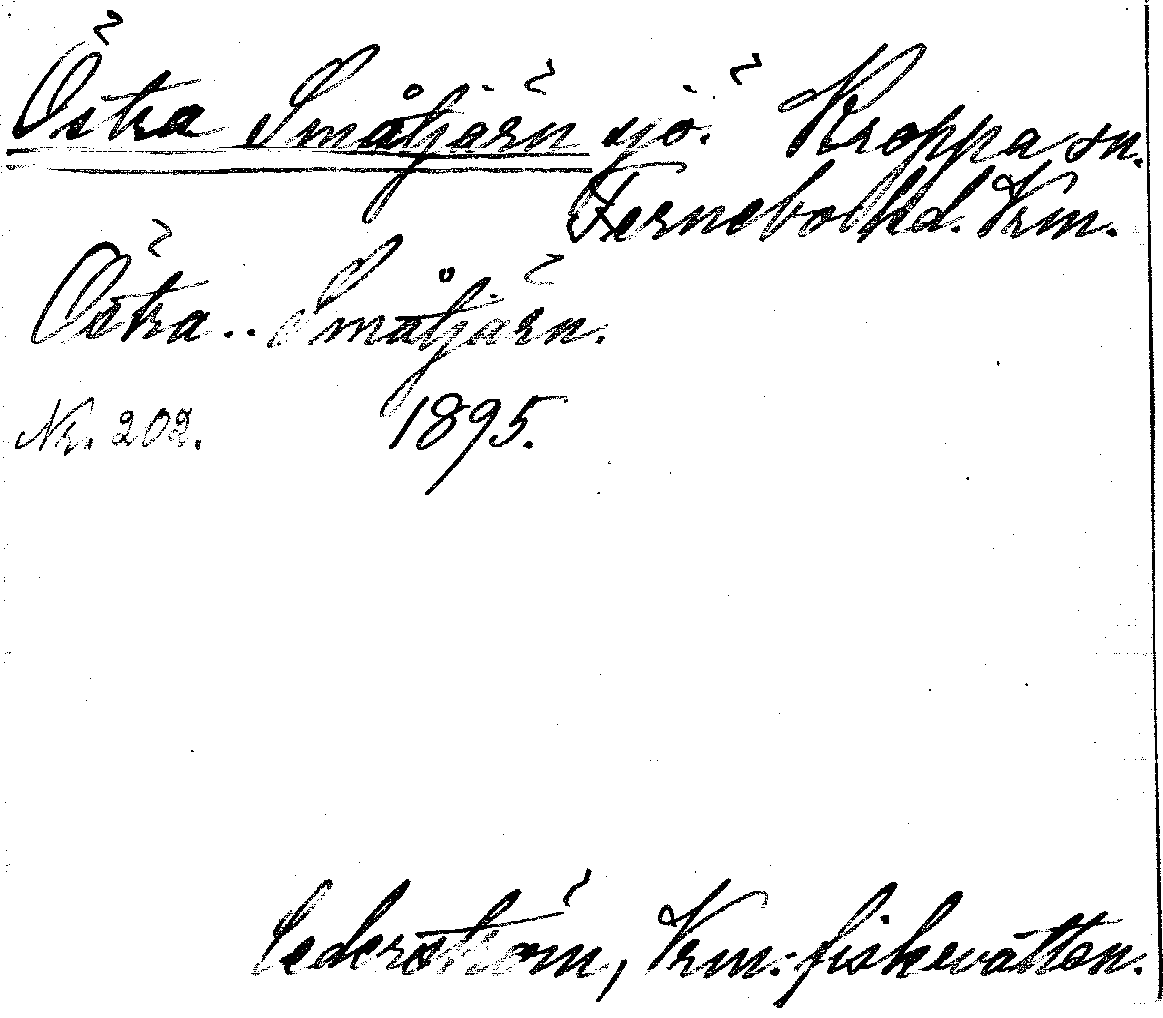 Östra Småtjärn sjö. Kroppa sn.
Fernebo hd. Vrm.
Östra.. Småtjärn.
Nr. 202. 1895.
Cederström, Vrm:fiskevatten.